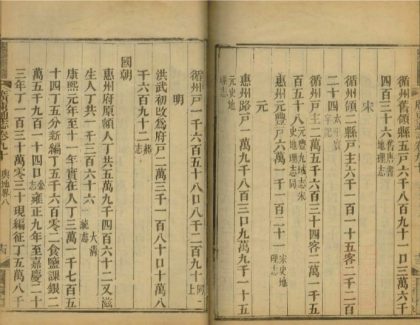 循州舊領縣五戶六千八百九十一口三萬六千
四百三十六舊唐書地理志
宋
循州領二縣戶主六千一百一十五客二千二百
二十四太平寰宇記
循州戶主二萬五千六百三十四客二萬一千五
百五十八元豐九域志宋史地理志同
惠州元豐戶六萬一千一百二十一宋史地理志
元
惠州路戶一萬九千八百三口九萬九千一十五
元史地理志
循州戶一千六百五十八口八千二百九十同上
明
洪武初改爲府戶二萬三千一百一十八口十萬八
千六百九十二
國朝
惠州府原額人丁共五萬九千四百六十二又滋
生人丁共一千三百六十六大清
康熙元年至十一年實在人丁三萬一千七百五
十四丁五分新編丁五千六百零二食鹽課銀二
萬五千九百一十四口雍正九年至嘉慶二十
三年丁一百三十萬零三十現編征丁五萬八千
志卷九十 輿地畧八